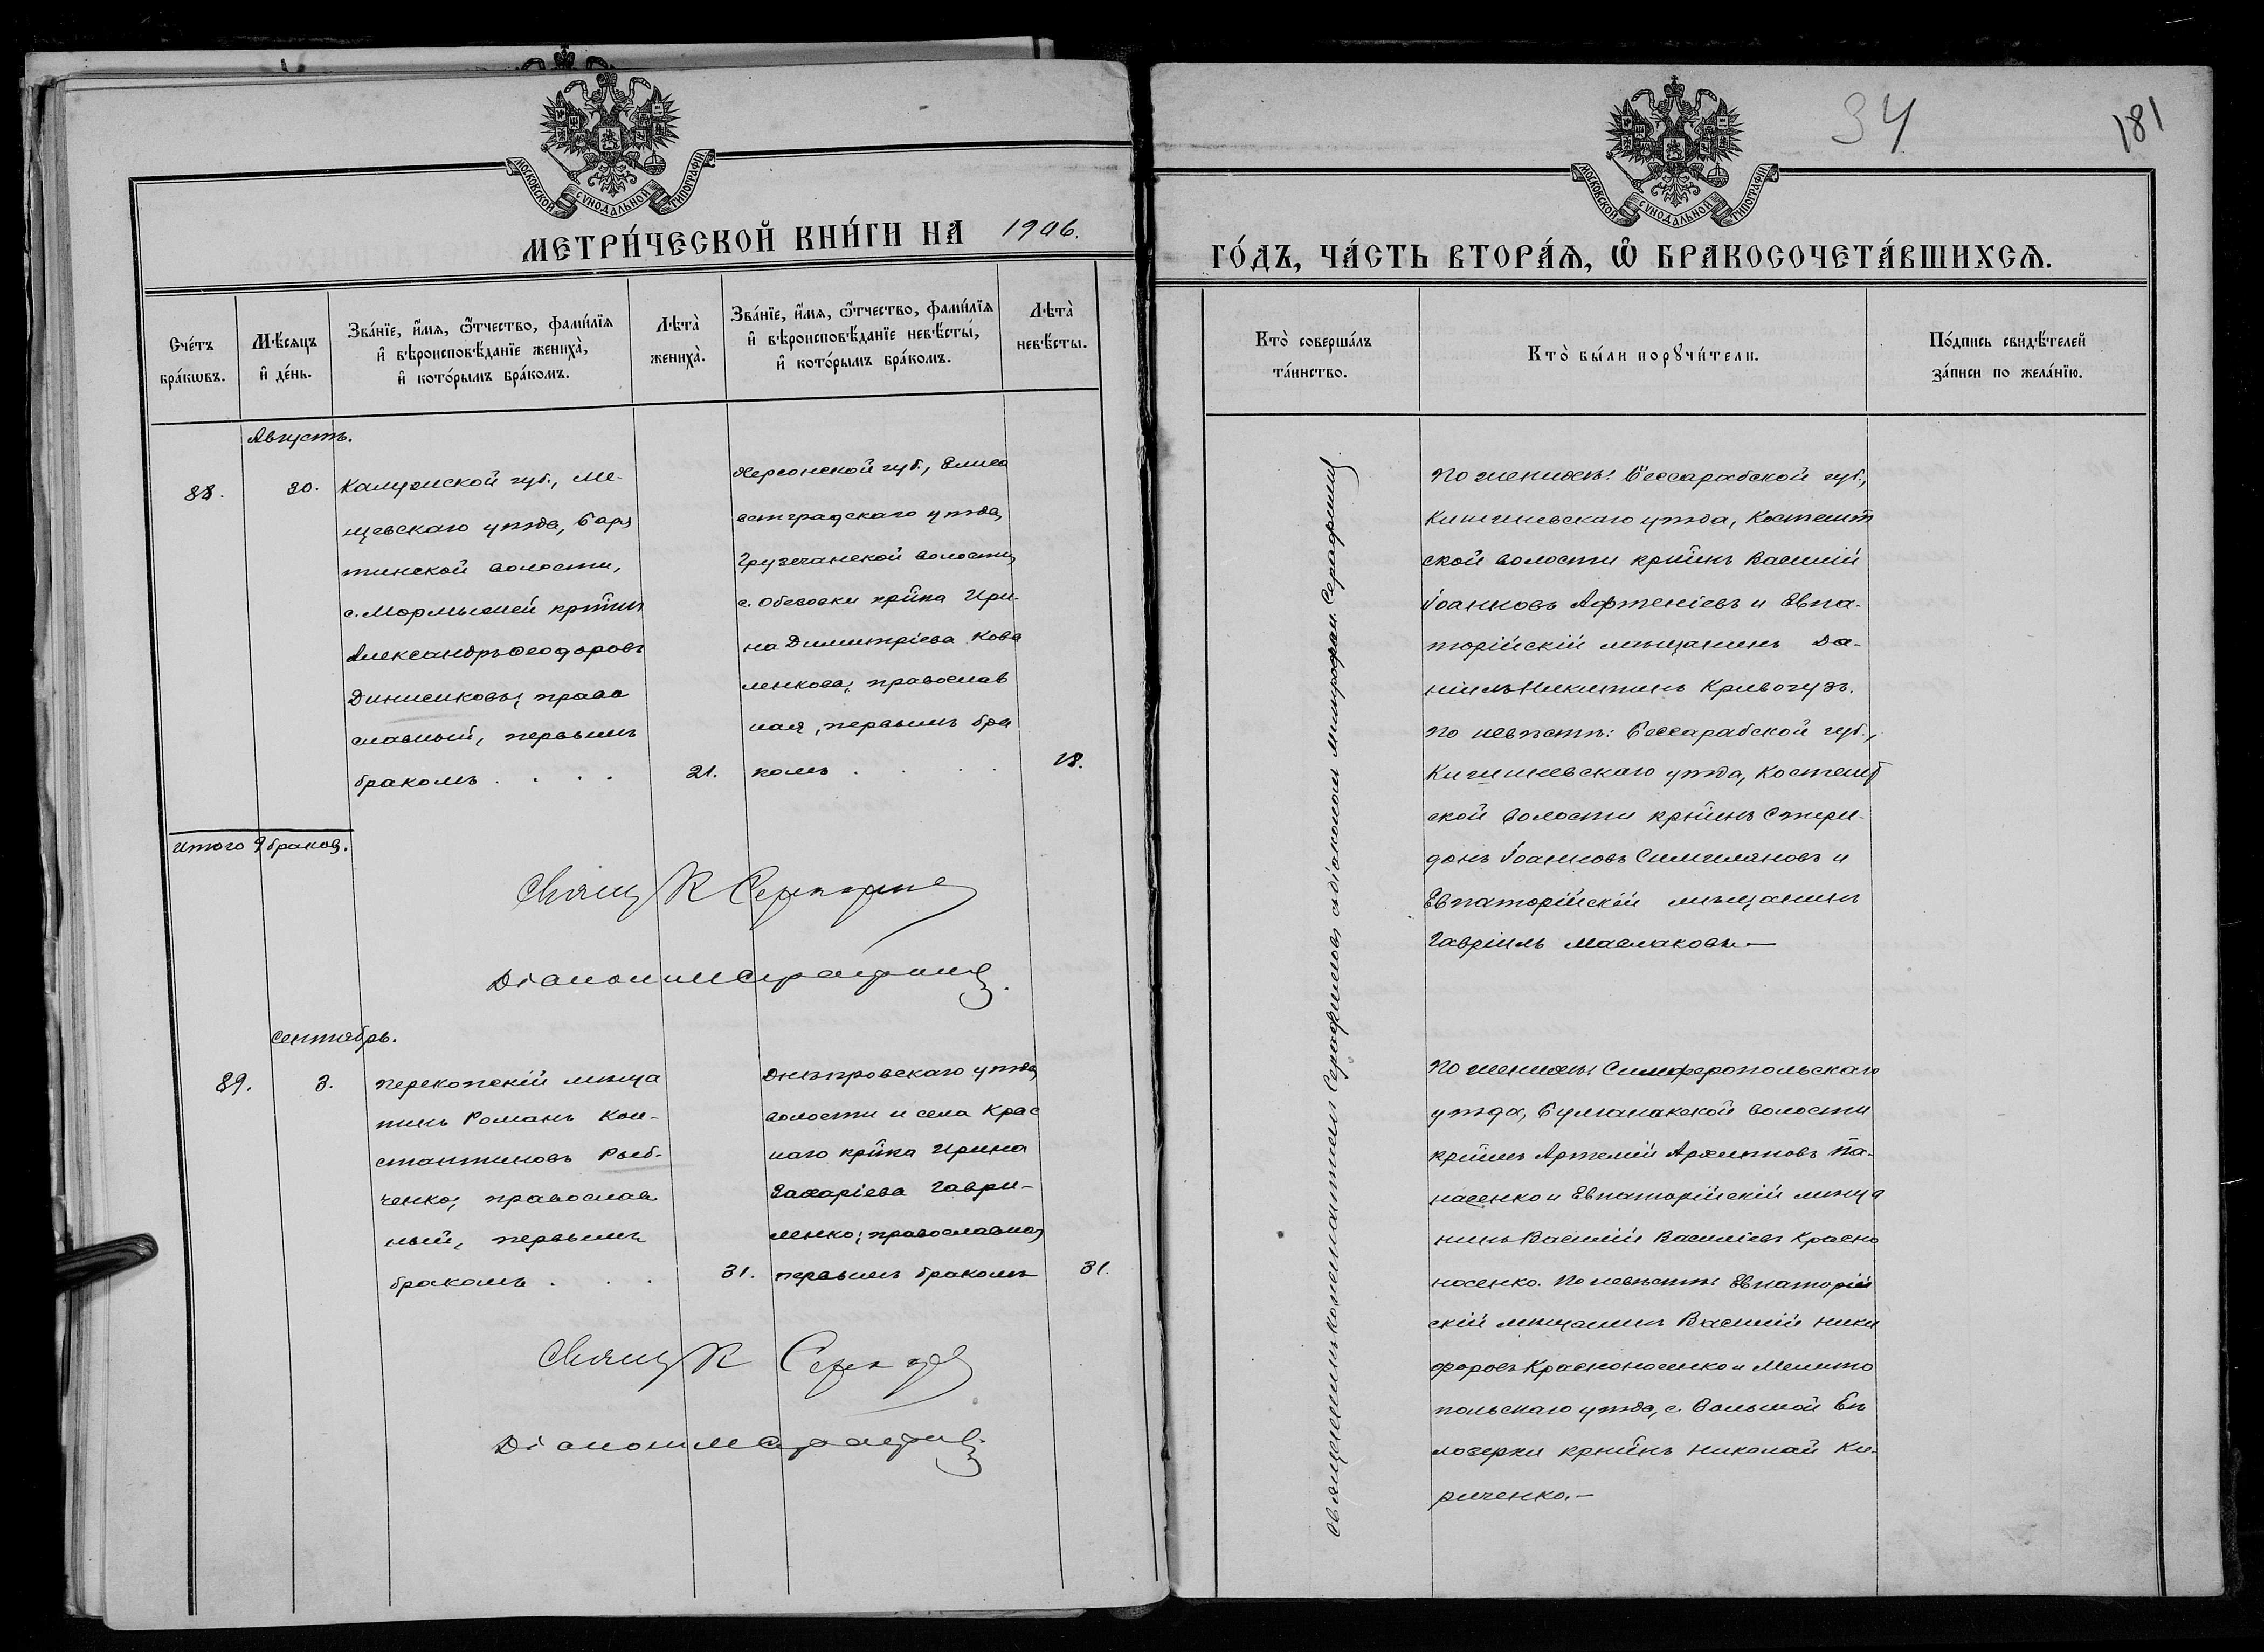 34
181
МОСКОВСКОЙ СѴНОДАЛЬНОЙ ТИПОГРАФІИ
МОСКОВСКОЙ СѴНОДАЛЬНОЙ ТИПОГРАФІИ
МЕТРИ́ЧЕСКОЙ КНИ́ГИ НА 1906.
ГО́ДЪ, ЧА́СТЬ ВТОРА́Ѧ, Ѽ БРАКОСОЧЕТА́ВШИХСѦ.
Сче́тъ бра́кѡвъ.
Мѣ́сяцъ и҆ де́нь.
Зва́нїе, и҆́мѧ, ѻ҆́тчество, фами́лїѧ
и҆ вѣроисповѣ́данїе жениха̀,
и҆ кото́рымъ бра́комъ.
Лѣта̀ жениха̀.
Зва́нїе, и҆́мѧ, ѻ҆́тчество, фами́лїѧ
и҆ вѣроисповѣ́данїе невѣ́сты,
и҆ кото́рымъ бра́комъ.
Лѣта̀ невѣ́сты.
Кто̀ соверша́лъ та́инство.
Кто̀ бы́ли порꙋчи́тели.
По́дпись свидѣ́телей за́писи по жела́нїю.
Августъ.
88.
30.
Калужской губ., Ме-
щевскаго уѣзда,
тинской волости,
с. крⷭ҇тинъ
Александръ Ѳеодоровъ
Динисиковъ, право
славный, первымъ
бракомъ . . . .
21.
Херсонской губ., Елиса
ветградскаго уѣзда,
Грузчанской волости,
с. Обесовки кр-ка Ири-
на Димитріева Кова
ленкова, православ
ная, первымъ бра
комъ . . . .
18.
Священникъ Константинъ Серафимовъ съ діакономъ Митрофан. Серафим.
По женихѣ: Бессарабской губ.,
Кишиневскаго уѣзда, Костешт
ской волости кр-инъ Василій
Іоанновъ Афтеніевъ и Евпа-
торійскій мѣщанинъ Да-
ніилъ Никитинъ Кривогузъ.
По невѣстѣ: Бессарабской губ.,
Кишиневскаго уѣзда, Костешт
ской волости кр-инъ Спири-
донъ Іоанновъ Симгиляновъ и
Евпаторійскій мѣщанинъ
Гавріилъ Маслаковъ. —
Итого 9 браков.
Свящ К Серафимов
Діаконъ М Серафимов.
Сентябрь.
89.
3.
Перекопскій мѣща
нинъ Романъ Кон-
стантиновъ Рыб-
ченко, православ
ный, первымъ
бракомъ . . .
31.
Днѣпровскаго уѣзда,
волости и села Крас
наго кр-ка Ирина
Захаріева Гаври-
ленко, православная,
первымъ бракомъ
31.
По женихѣ: Симферопольскаго
уѣзда, Булганакской волости
кр-инъ Артемій Архиповъ Па-
насенко и Евпаторійскій мѣща
нинъ Василій Васильевъ Красно
носенко. По невѣстѣ: Евпаторій
скій мѣщанинъ Василій Ники
форовъ Красноносенко и Мелито
польскаго уѣзда, с. Большой Бѣ
лозерки кр-инъ Николай Ки-
риченко. —
Свящ К Сераф
Діаконъ М Серафимов.